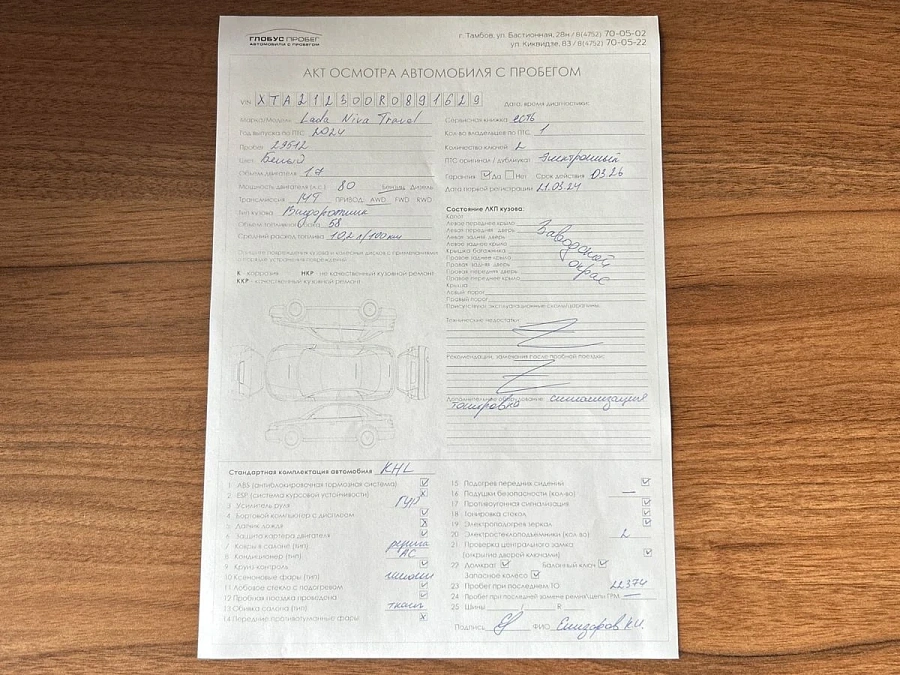 ГЛОБУС ПРОБЕГ
АВТОМОБИЛИ С ПРОБЕГОМ
г. Тамбов, ул. Бастионная, 28н / 8(4752) 70-05-02
ул. Киквидзе, 83 / 8(4752) 70-05-22
АКТ ОСМОТРА АВТОМОБИЛЯ С ПРОБЕГОМ
VIN XTA212300R0891629
Дата, время диагностики:
Марка/Модель Lada Niva Travel
Год выпуска по ПТС 2024
Пробег 29512
Цвет Белый
Объем двигателя 1.7
Мощность двигателя (л.с.) 80 Бензин Дизель
Трансмиссия МТ ПРИВОД: AWD FWD RWD
Тип кузова Внедорожник
Объем топливного бака 58
Средний расход топлива 10,2 л/100км
К - коррозия НКР - не качественный кузовной ремонт
ККР - качественный кузовной ремонт
Сервисная книжка есть
Кол-во владельцев по ПТС 1
Количество ключей 2
ПТС оригинал / дубликат Электронный
Гарантия Да Нет Срок действия 03.26
Дата первой регистрации 21.03.24
Состояние ЛКП кузова:
Капот
Левое переднее крыло
Левая передняя дверь
Левая задняя дверь
Левое заднее крыло
Крышка багажника
Правое заднее крыло
Правая задняя дверь
Правая передняя дверь
Правое переднее крыло
Крыша
Левый порог
Правый порог
Заводской окрас
Присутствуют эксплуатационные сколы/царапины
Технические недостатки:
Рекомендации, замечания после пробной поездки:
Дополнительное оборудование: сигнализация
тонировка
Стандартная комплектация автомобиля
1 ABS (антиблокировочная тормозная система)
2 ESP (система курсовой устойчивости)
3 Усилитель руля ГУР
4 Бортовой компьютер с дисплеем
5 Датчик дождя
6 Защита картера двигателя
7 Ковры в салоне (тип) резина
8 Кондиционер (тип) AC
9 Круиз контроль
10 Ксеноновые фары (тип)
11 Лобовое стекло с подогревом
12 Пробная поездка проведена
13 Обивка салона (тип) ткань
14 Передние противотуманные фары
15 Подогрев передних сидений
16 Подушки безопасности (кол-во) —
17 Противоугонная сигнализация
18 Тонировка стекол
19 Электроподогрев зеркал
20 Электростеклоподъемники (кол-во) 2
21 Проверка центрального замка
(открытие дверей ключами)
22 Домкрат Балонный ключ
Запасное колесо
23 Пробег при последнем ТО 22374
24 Пробег при последней замене ремня/цепи ГРМ —
25 Шины / R
Подпись ФИО